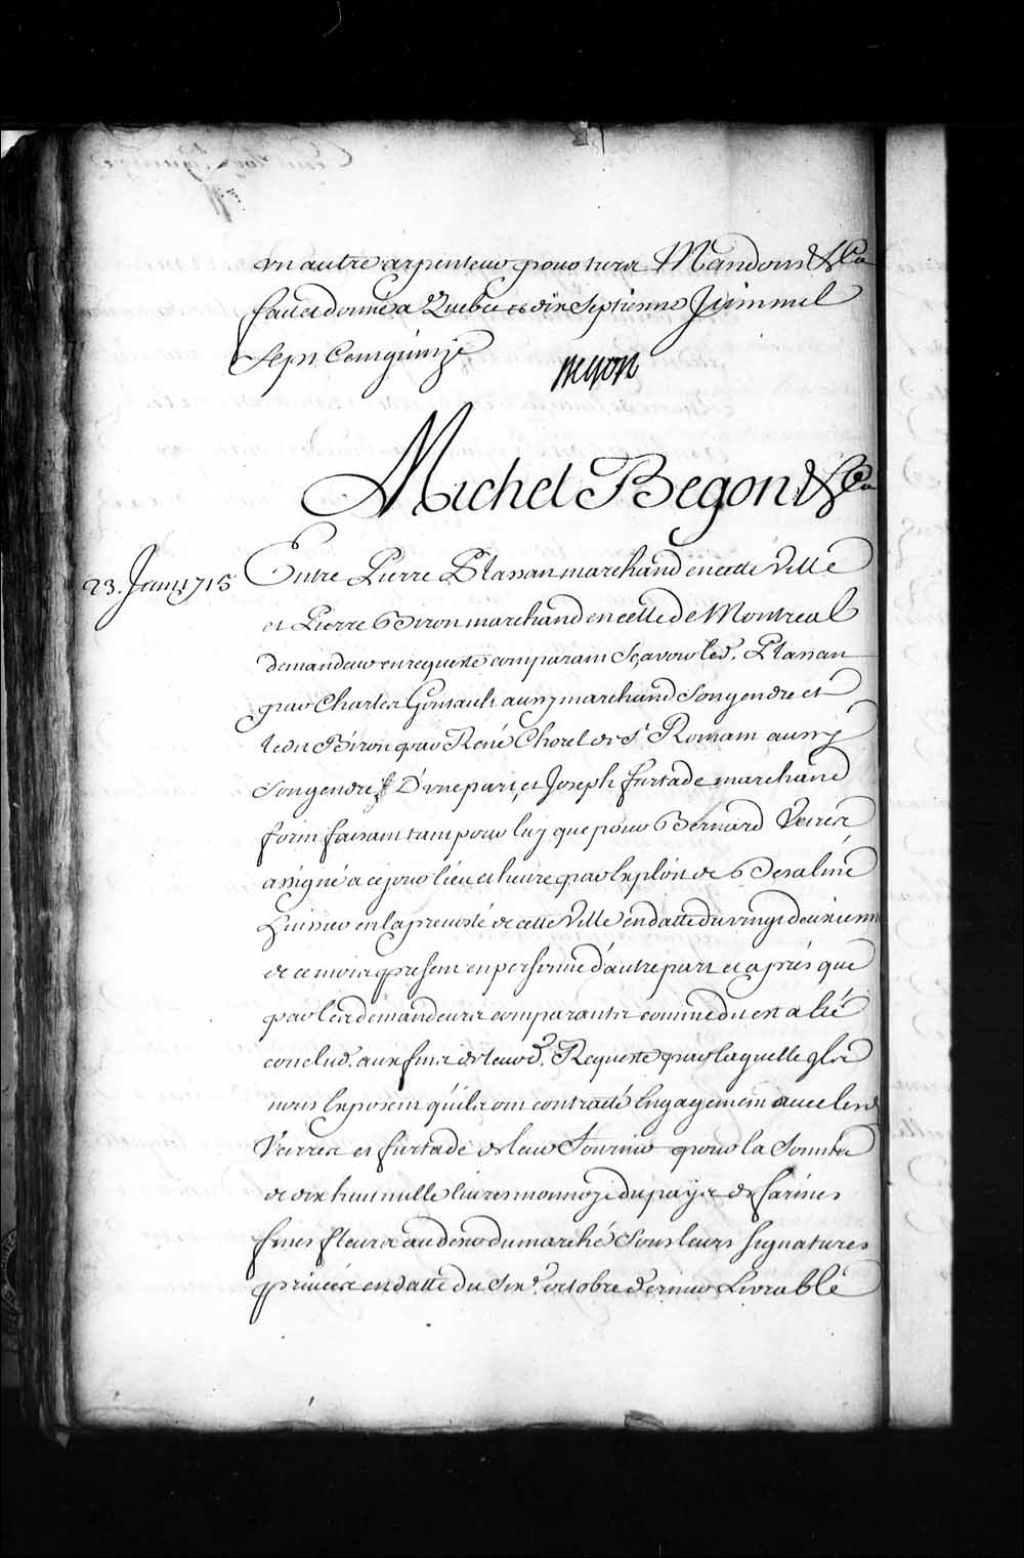 un autre arpenteur pour tiers Mandons &Ca
fait et donné a Quebec ce dix Septieme Jer mil
Sept Cent quinze
Begon
Michel Begon &Ca
23. Janer 1715
Entre Pierre Plassan marchand en cette Ville
et Pierre Biron marchand en celle de Montreal
demandeur en requeste comparant Sçavoir led. Plassan
par Charles Guitault aussy marchand Son gendre et
ledit Biron par René Chorel de St Romain aussy
Son gendre D'une part, et Joseph furtade marchand
forin faisant tant pour luy que pour Bernard Veirier
assigné a ce jour lieu et heure par Exploit de Desaline
huissier en la prevosté de cette Ville en datte du vingt deuxieme
de ce mois present en personne d'autre part et aprés que
par les demandeurs comparants comme dit est a été
conclud. aux fins de leurd. Requeste par laquelle Ils
nous Exposent qu'ils ont contracté Engagement avec lesd
Veirier et furtade de leur Fournir pour la Somme
de dix huit mille livres monnoye du pays de farines
fines fleurs au desir du marché Sous leurs Signatures
privées en datte du Six d'octobre dernier Livrable